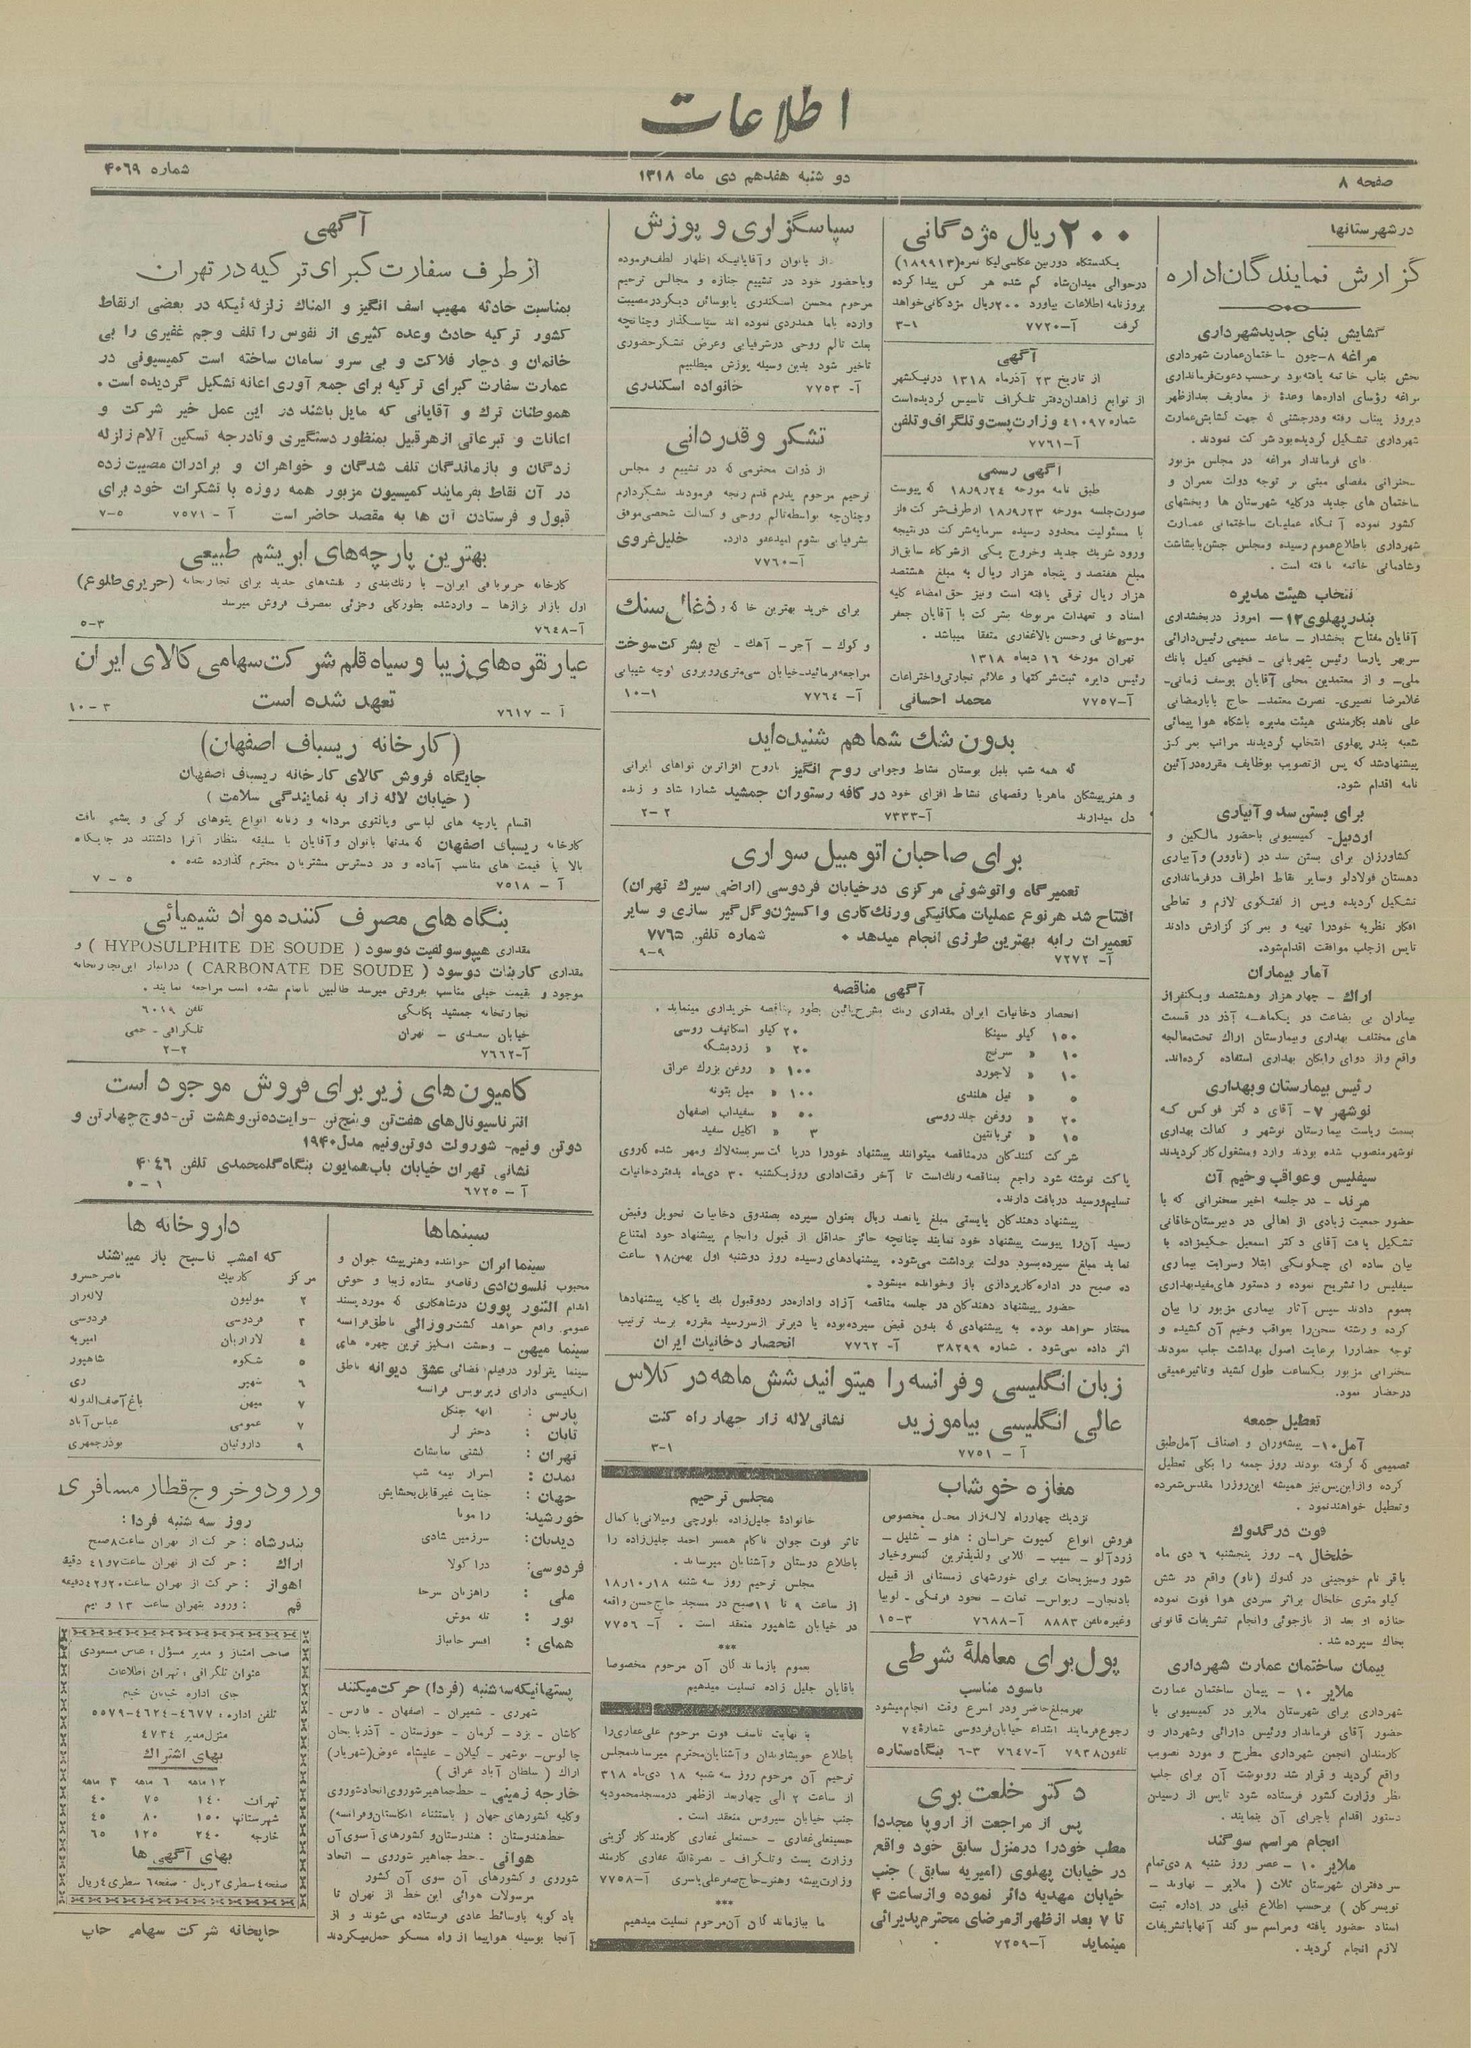 اطلاعات
صفحه ۸
دو شنبه هفدهم دی ماه ۱۳۱۸
شماره ۴۰۶۹
در شهرستانها
گزارش نمایندگان اداره
گشایش بنای جدید شهرداری
مراغه ۸- چون ساختمان عمارت شهرداری
بخش بناب خاتمه یافته بود برحسب دعوت فرمانداری
مراغه رؤسای ادارهها وعدهٔ از معاریف بعدازظهر
دیروز ببناب رفته ودرجشنی که جهت گشایش عمارت
شهرداری تشکیل گردیده بود شرکت نمودند.
آقای فرماندار مراغه در مجلس مزبور
سخنرانی مفصلی مبنی بر توجه دولت بعمران و
ساختمان های جدید درکلیه شهرستان ها وبخشهای
کشور نموده آنگاه عملیات ساختمانی عمارت
شهرداری باطلاع عموم رسیده ومجلس جشن بابشاشت
وشادمانی خاتمه یافته است.
انتخاب هیئت مدیره
بندرپهلوی ۱۲- امروز دربخشداری
آقایان مفتاح بخشدار - ساعد سمیعی رئیس دارائی
سرپهر پارسا رئیس شهربانی - فخیمی کفیل بانک
ملی- و از معتمدین محلی آقایان یوسف زمانی-
غلامرضا نصیری- نصرت معتمد- حاج بابا رمضانی
علی ناهد بکارمندی هیئت مدیره باشگاه هوا پیمائی
شعبه بندر پهلوی انتخاب گردیدند مراتب بمرکز
پیشنهاد شد که پس ازتصویب بوظایف مقرره در آئین
نامه اقدام شود.
برای بستن سد و آبیاری
اردبیل- کمیسیونی باحضور مالکین و
کشاورزان برای بستن سد در (ناوور) وآبیاری
دهستان فولادلو وسایر نقاط اطراف درفرمانداری
تشکیل گردیده وپس از گفتگوی لازم و تعاطی
افکار نظریه خودرا تهیه و بمرکز گزارش دادند
تاپس ازجلب موافقت اقدام شود.
آمار بیماران
اراک - چهار هزار وهشتصد ویکنفراز
بیماران بی بضاعت در یکماهه آذر در قسمت
های مختلف بهداری وبیمارستان اراک تحت معالجه
واقع واز دوای رایگان بهداری استفاده کرده اند.
رئیس بیمارستان و بهداری
نوشهر ۷- آقای دکتر فوکس که
بسمت ریاست بیمارستان نوشهر و کفالت بهداری
نوشهر منصوب شده بودند وارد ومشغول کار گردیدند
سیفلیس و عواقب وخیم آن
مرند - در جلسه اخیر سخنرانی که با
حضور جمعیت زیادی از اهالی در دبیرستان خاقانی
تشکیل یافت آقای دکتر اسمعیل حکیم زاده با
بیان ساده ای چگونگی ابتلا وسرایت بیماری
سیفلیس را تشریح نموده و دستور های مفید بهداری
بعموم دادند سپس آثار بیماری مزبور را بیان
کرده و رشته سخن را بعواقب وخیم آن کشیده و
توجه حضار را برعایت اصول بهداشت جلب نمودند
سخنرانی مزبور یکساعت طول کشید وتاثیر عمیقی
درحضار نمود.
تعطیل جمعه
آمل ۱۰- پیشه وران و اصناف آمل طبق
تصمیمی که گرفته بودند روز جمعه را بکلی تعطیل
کرده وازاین پس نیز همیشه این روز را مقدس شمرده
وتعطیل خواهند نمود.
فوت در گدوک
خلخال ۹- روز پنجشنبه ۶ دی ماه
باقر نام خوجینی در گدوک (ناو) واقع در شش
کیلومتری خلخال براثر سردی هوا فوت نموده
جنازه او بعد از بازجوئی وانجام تشریفات قانونی
بخاک سپرده شد.
پیمان ساختمان عمارت شهرداری
ملایر ۱۰ - پیمان ساختمان عمارت
شهرداری برای شهرستان ملایر در کمیسیونی با
حضور آقای فرماندار ورئیس دارائی وشهردار و
کارمندان انجمن شهرداری مطرح و مورد تصویب
واقع گردید و قرار شد رونوشت آن برای جلب
نظر وزارت کشور فرستاده شود تاپس از رسیدن
دستور اقدام باجرای آن بنمایند.
انجام مراسم سوگند
ملایر ۱۰ - عصر روز شنبه ۸ دی تمام
سر دفتران شهرستان ثلاث (ملایر - نهاوند -
تویسرکان) برحسب اطلاع قبلی در اداره ثبت
اسناد حضور یافته ومراسم سوگند آنها با تشریفات
لازم انجام گردید.
۲۰۰ ریال مژدگانی
یکدستگاه دوربین عکاسی لیکا نمره (۱۸۹۹۱۳)
درحوالی میدان شاه گم شده هر کس پیدا کرده
بروزنامه اطلاعات بیاورد ۲۰۰ ریال مژدگانی خواهد
گرفت آ-۷۷۲۰ ۳-۱
آگهی
از تاریخ ۲۳ آذرماه ۱۳۱۸ درنیکشهر
از توابع زاهدان دفتر تلگراف تاسیس گردیده است
شماره ۴۱۰۹۷ وزارت پست و تلگراف و تلفن
آ-۷۷۶۱
آگهی رسمی
طبق نامه مورخه ۱۸/۹/۲۴ که پیوست
صورت جلسه مورخه ۱۸/۹/۲۳ ازطرف شرکت فلز
با مسئولیت محدود رسیده سرمایه شرکت درنتیجه
ورود شریک جدید وخروج یکی ازشرکاء سابق از
مبلغ هفتصد و پنجاه هزار ریال به مبلغ هشتصد
هزار ریال ترقی یافته است ونیز حق امضاء کلیه
اسناد و تعهدات مربوطه بشرکت با آقایان جعفر
موسیوخانی وحسن بالاغفاری متفقا میباشد.
تهران مورخه ۱۶ دیماه ۱۳۱۸
رئیس دایره ثبت شرکتها و علائم تجارتی و اختراعات
آ-۷۷۵۷ محمد احسانی
سپاسگزاری و پوزش
از بانوان و آقایانیکه اظهار لطف فرموده
وباحضور خود در تشییع جنازه و مجالس ترحیم
مرحوم محسن اسکندری یابوسائل دیگردرمصیبت
وارده باما همدردی نموده اند سپاسگذار وچنانچه
بعلت تالم روحی درشرفیابی وعرض تشکر حضوری
تاخیر شود بدین وسیله پوزش میطلبیم
آ-۷۷۵۳ خانواده اسکندری
تشکر و قدردانی
از ذوات محترمی که در تشییع و مجلس
ترحیم مرحوم پدرم قدم رنجه فرمودند تشکردارم
وچنانچه بواسطه تالم روحی و کسالت شخصی موفق
بشرفیابی نشوم امیدعفو دارد. خلیل غروی
آ-۷۷۶۰
برای خرید بهترین خاکه و ذغال سنگ
و کوک - آجر - آهک - گچ بشرکت سوخت
مراجعه فرمائید- خیابان سی متری روبروی کوچه شیبانی
آ-۷۷۶۴ ۱۰-۱
بدون شک شما هم شنیده اید
که همه شب بلبل بوستان نشاط وجوانی روح انگیز باروح افزاترین نواهای ایرانی
و هنرپیشگان ماهر با رقصهای نشاط افزای خود در کافه رستوران جمشید شما را شاد و زنده
دل میدارند آ-۷۳۳۳ ۲-۲
برای صاحبان اتومبیل سواری
تعمیرگاه و اتوشوئی مرکزی در خیابان فردوسی (اراضی سیرک تهران)
افتتاح شد هر نوع عملیات مکانیکی و رنگ کاری و اکسیژن و گل گیر سازی و سایر
تعمیرات را به بهترین طرزی انجام میدهد. شماره تلفن ۷۷۶۵
آ-۷۲۷۲ ۹-۹
آگهی مناقصه
انحصار دخانیات ایران مقداری رنگ بشرح پائین بطور مناقصه خریداری مینماید.
۱۵۰ کیلو سینکا ۲۰ کیلو اسکاتیف روسی
۱۰ » سرنج ۲۰ » زردبشکه
۱۰ » لاجورد ۱۰۰ » روغن بزرک عراق
۵ » نیل هلندی ۱۰۰ » میل بتونه
۲۰ » روغن جلد روسی ۵۰ » سفیداب اصفهان
۱۵ » تربانتین ۳ » اکلیل سفید
شرکت کنندگان درمناقصه میتوانند پیشنهاد خودرا درپاکت سربسته لاک ومهر شده که روی
پاکت نوشته شود راجع بمناقصه رنگ است تا آخر وقت اداری روزیکشنبه ۳۰ دی ماه بدفتر دخانیات
تسلیم ورسید دریافت دارند.
پیشنهاد دهندگان بایستی مبلغ پانصد ریال بعنوان سپرده بصندوق دخانیات تحویل وقبض
رسید آنرا پیوست پیشنهاد خود نمایند چنانچه حائز حداقل از قبول وانجام پیشنهاد خود امتناع
نماید مبلغ سپرده بسود دولت برداشت می شود. پیشنهادهای رسیده روز دوشنبه اول بهمن ۱۸ ساعت
ده صبح در اداره کارپردازی باز وخوانده میشود.
حضور پیشنهاد دهندگان در جلسه مناقصه آزاد واداره در ردوقبول یک یاکلیه پیشنهادها
مختار خواهد بود. به پیشنهادی که بدون قبض سپرده بوده یا دیرتر از سررسید مقرره برسد ترتیب
اثر داده نمی شود. شماره ۳۸۲۹۹ آ-۷۷۶۲ انحصار دخانیات ایران
زبان انگلیسی و فرانسه را میتوانید شش ماهه در کلاس
عالی انگلیسی بیاموزید نشانی لاله زار چهار راه کنت
آ-۷۷۵۱ ۳-۱
مغازه خوشاب
نزدیک چهارراه لاله زار محل مخصوص
فروش انواع کمپوت خراسان: هلو - شلیل -
زردآلو - سیب - گلابی ولذیذترین کنسرو خیار
شور وسبزیجات برای خورشهای زمستانی از قبیل
بادنجان - ریواس - تمات - نخود فرنگی - لوبیا
وغیره تلفن ۸۸۸۳ آ-۷۶۸۸ ۱۵-۳
پول برای معامله شرطی
باسود مناسب
بهر مبلغ حاضر ودر اسرع وقت انجام میشود
رجوع فرمایند ابتداء خیابان فردوسی شمارهٔ ۷۴
تلفون ۷۹۳۸ آ-۷۶۴۷ ۶-۳ بنگاه ستاره
دکتر خلعت بری
پس از مراجعت از اروپا مجددا
مطب خود را در منزل سابق خود واقع
در خیابان پهلوی (امیریه سابق) جنب
خیابان مهدیه دائر نموده و از ساعت ۴
تا ۷ بعد از ظهر از مرضای محترم پذیرائی
مینماید آ-۷۲۵۹
مجلس ترحیم
خانوادهٔ جلیل زاده بلورچی ومیلانی با کمال
تاثر فوت جوان ناکام همسر احمد جلیل زاده را
باطلاع دوستان و آشنایان میرساند.
مجلس ترحیم روز سه شنبه ۱۸/۱۰/۱۸
از ساعت ۹ تا ۱۱ صبح در مسجد حاج حسن واقعه
در خیابان شاهپور منعقد است. آ-۷۷۵۶
***
بعموم بازماندگان آن مرحوم مخصوصا
باقایان جلیل زاده تسلیت میدهیم
با نهایت تاسف فوت مرحوم علی غفاری را
باطلاع خویشاوندان و آشنایان محترم میرساند مجلس
ترحیم آن مرحوم روز سه شنبه ۱۸ دی ماه ۳۱۸
از ساعت ۲ الی چهار بعد ازظهر درمسجد محمودیه
جنب خیابان سیروس منعقد است.
حسینعلی غفاری - حسنعلی غفاری کارمند کار گزینی
وزارت پست وتلگراف - نصرة الله غفاری کارمند
وزارت پیشه وهنر- حاج صفرعلی یاسری آ-۷۷۵۸
***
ما ببازماندگان آن مرحوم تسلیت میدهیم
آگهی
از طرف سفارت کبرای ترکیه در تهران
بمناسبت حادثه مهیب اسف انگیز و المناک زلزله ئیکه در بعضی ازنقاط
کشور ترکیه حادث وعده کثیری از نفوس را تلف وجم غفیری را بی
خانمان و دچار فلاکت و بی سرو سامان ساخته است کمیسیونی در
عمارت سفارت کبرای ترکیه برای جمع آوری اعانه تشکیل گردیده است.
هموطنان ترک و آقایانی که مایل باشند در این عمل خیر شرکت و
اعانات و تبرعاتی از هر قبیل بمنظور دستگیری و تادرجه تسکین آلام زلزله
زدگان و بازماندگان تلف شدگان و خواهران و برادران مصیبت زده
در آن نقاط بفرمایند کمیسیون مزبور همه روزه با تشکرات خود برای
قبول و فرستادن آن ها به مقصد حاضر است آ-۷۵۷۱ ۷-۵
بهترین پارچه های ابریشم طبیعی
کارخانه حریربافی ایران- با رنگبندی و نقشه های جدید برای تجارتخانه (حریری طلوع)
اول بازار بزازها - وارد شده بطور کلی وجزئی بمصرف فروش میرسد
آ-۷۶۴۸ ۵-۳
عیار نقره های زیبا و سیاه قلم شرکت سهامی کالای ایران
تعهد شده است
آ-۷۶۱۷ ۱۰-۳
(کارخانه ریسباف اصفهان)
جایگاه فروش کالای کارخانه ریسباف اصفهان
(خیابان لاله زار به نمایندگی سلامت)
اقسام پارچه های لباسی وپالتوی مردانه و زنانه انواع پتوهای کرکی و پشمی بافت
کارخانه ریسباف اصفهان که مدتها بانوان وآقایان با سلیقه منتظر آنرا داشتند در جایگاه
بالا با قیمت های مناسب آماده و در دسترس مشتریان محترم گذارده شده.
آ-۷۵۱۸ ۷-۵
بنگاه های مصرف کننده مواد شیمیائی
مقداری هیپوسولفیت دوسود (HYPOSULPHITE DE SOUDE) و
مقداری کاربنات دوسود (CARBONATE DE SOUDE) درانبار این تجارتخانه
موجود و بقیمت خیلی مناسب بفروش میرسد طالبین تا تمام نشده است مراجعه نمایند.
تجارتخانه جمشید یگانگی تلفن ۶۰۱۹
خیابان سعدی - تهران تلگرافی - جمی
آ-۷۶۶۲ ۲-۲
کامیون های زیر برای فروش موجود است
انترناسیونال های هفت تن و پنج تن - وایت ده تن و هشت تن - دوج چهار تن و
دوتن و نیم - شورولت دوتن و نیم مدل ۱۹۴۰
نشانی تهران خیابان باب همایون بنگاه گلمحمدی تلفن ۴۰۴۶
آ-۶۷۲۵ ۵-۱
سینماها
سینما ایران خواننده وهنرپیشه جوان و
محبوب نلسون ادی رقاصه و ستاره زیبا و خوش
اندام النور پوول درشاهکاری که مورد پسند
عمومی واقع خواهد گشت روزالی ناطق فرانسه
سینما میهن - وحشت انگیز ترین چهره های
سینما پترلور درفیلم: قضائی عشق دیوانه ناطق
انگلیسی دارای زیرنویس فرانسه
پارس : الهه جنگل
تابان : دختر لر
تهران : کشتی نمایشات
تمدن : اسرار نیمه شب
جهان : جنایت غیرقابل بخشایش
خورشید: رامونا
دیدبان: سرزمین شادی
فردوسی: دراکولا
ملی : راهزنان سرحد
نور : تله موش
همای : افسر جانباز
پستهائیکه سه شنبه (فردا) حرکت میکنند
شهرری - شمیران - اصفهان - فارس -
کاشان - یزد - کرمان - خوزستان - آذربایجان
چالوس - نوشهر - گیلان - علیشاه عوض (شهریار)
اراک (سلطان آباد عراق)
خارجه زمینی- خط جماهیر شوروی اتحاد شوروی
وکلیه کشورهای جهان (باستثناء انگلستان و فرانسه)
خط هندوستان: هندوستان و کشورهای آسوی آن
هوائی- خط جماهیر شوروی - اتحاد
شوروی و کشورهای آن سوی آن کشور
مرسولات هوائی این خط از تهران تا
بادکوبه باوسائط عادی فرستاده می شوند و از
آنجا بوسیله هواپیما از راه مسکو حمل میگردند
داروخانه ها
که امشب تاصبح باز میباشند
مرکز کاربیک ناصرخسرو
۲ مولیون لاله زار
۳ فردوسی فردوسی
۴ لاراریان امیریه
۵ شکوه شاهپور
۶ شهیر ری
۷ میهن باغ آصف الدوله
۷ عمومی عباس آباد
۹ داروئیان بوذرجمهری
ورود و خروج قطار مسافری
روز سه شنبه فردا:
بندرشاه : حرکت از تهران ساعت ۸ صبح
اراک : حرکت از تهران ساعت ۷ و ۴۱ دقیقه
اهواز : حرکت از تهران ساعت ۲۰ و ۴۲ دقیقه
قم : ورود بتهران ساعت ۱۳ و نیم
صاحب امتیاز و مدیر مسؤل: عباس مسعودی
عنوان تلگرافی: تهران اطلاعات
جای اداره خیابان خیام
تلفن اداره: ۴۶۷۷-۴۶۲۴-۵۵۷۹
منزل مدیر ۴۷۳۴
بهای اشتراک
۱۲ ماهه ۶ ماهه ۳ ماهه
تهران ۱۴۰ ۷۵ ۴۰
شهرستانها ۱۵۰ ۸۰ ۴۵
خارجه ۲۴۰ ۱۲۵ ۶۵
بهای آگهی ها
صفحه ۴ سطری ۲ ریال - صفحه ۶ سطری ۴ ریال
چاپخانه شرکت سهامی چاپ